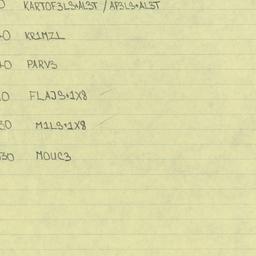 KARTOF3LS*AL3T / AP3LS*AL3T
0 KR1MZL
0 PARV3
0 FLAJS*1X8
30 M1LS*1X8
30 MOUC3